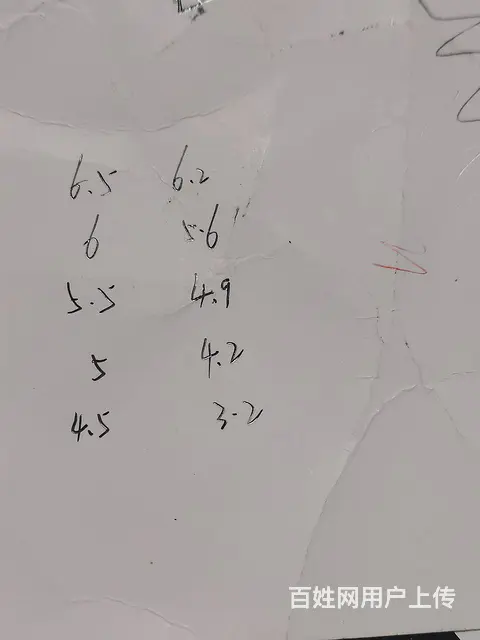 6.5 6.2
6 5.6
5.5 4.9
5 4.2
4.5 3.2
百姓网用户上传